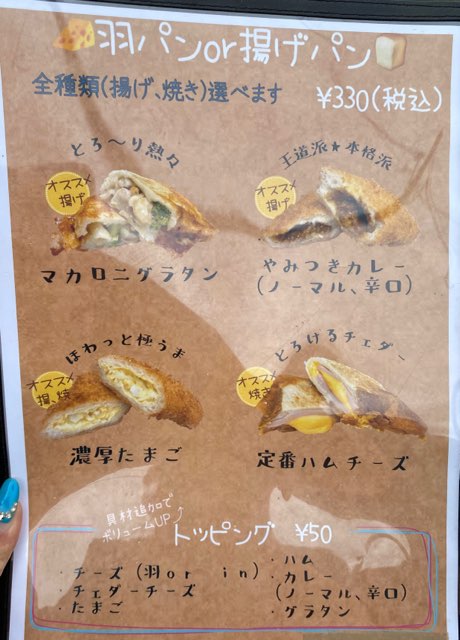 羽パンor揚げパン
全種類(揚げ、焼き)選べます
¥330(税込)
とろ〜り熱々
オススメ
揚げ
マカロニグラタン
王道派★本格派
オススメ
揚げ
やみつきカレー
(ノーマル、辛口)
ほわっと極うま
オススメ
揚、焼
濃厚たまご
とろけるチェダー
オススメ
焼き
定番ハムチーズ
具材追加で
ボリュームUP
トッピング ¥50
・チーズ(羽or in)
・チェダーチーズ
・たまご
・ハム
・カレー
(ノーマル、辛口)
・グラタン